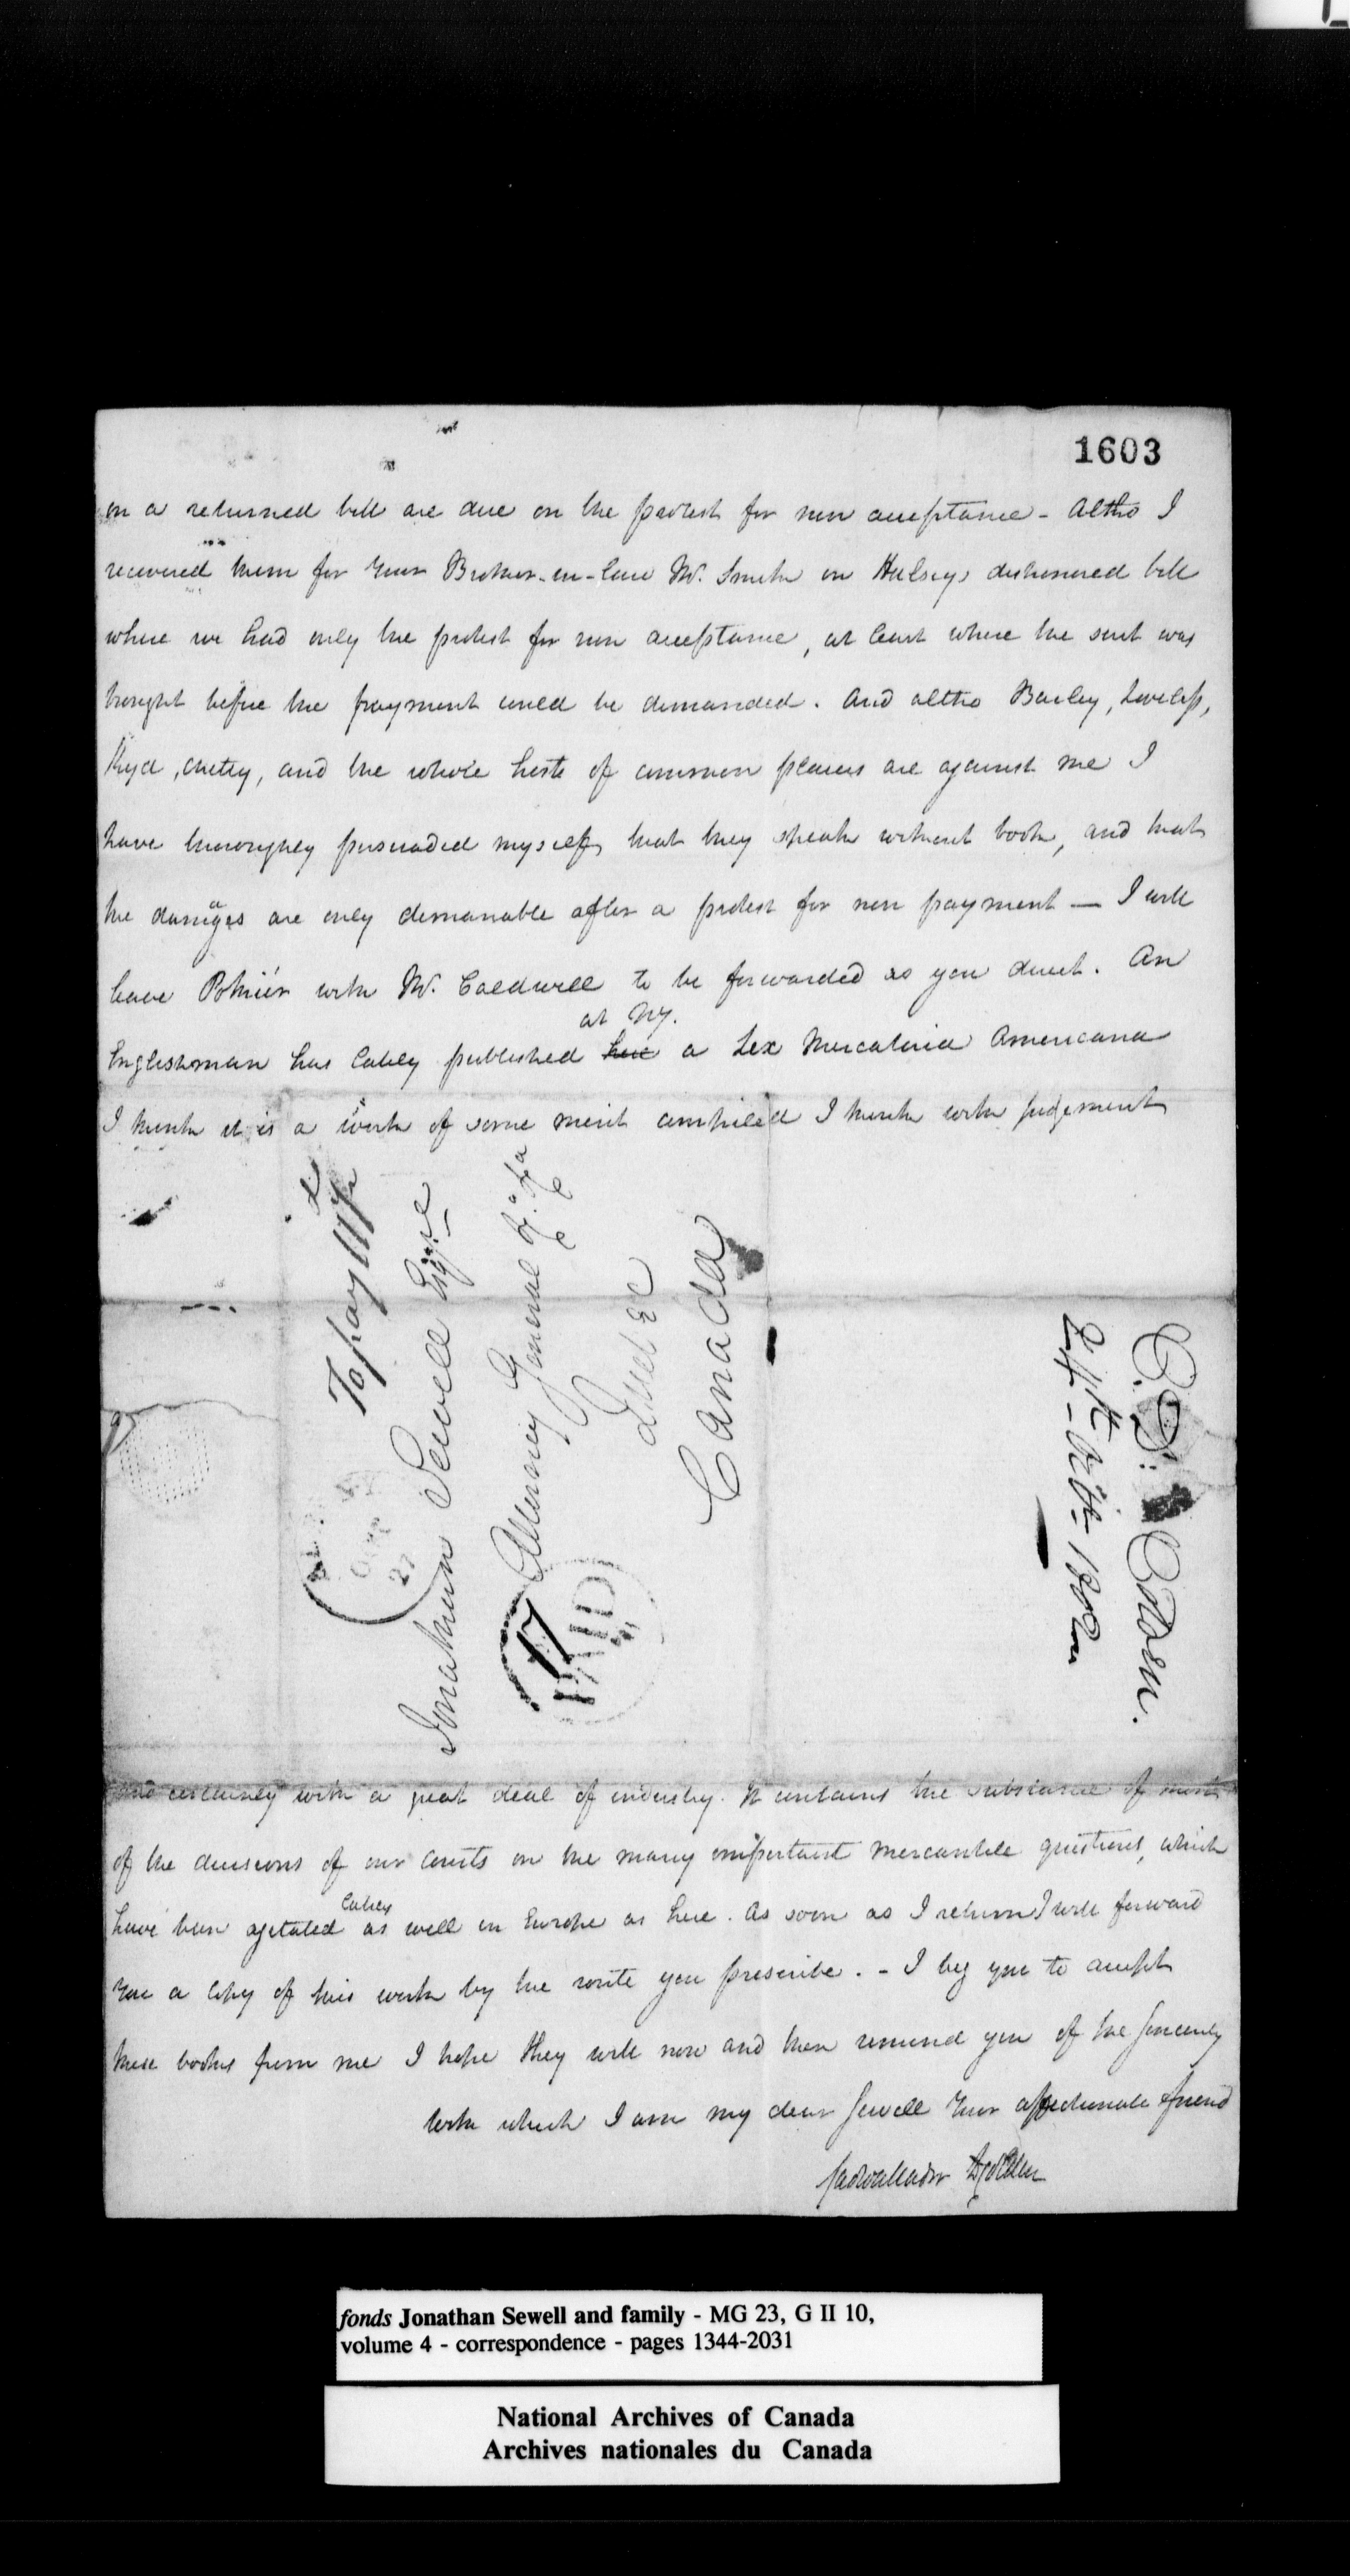 1603
on a returned bill are due on the protest for non acceptance - Altho I
recovered them for your Brother-in-law Mr. Smith on Halseys dishonored bill
where we had only the protest for non acceptance, at least where the suit was
brought before the payment could be demanded. And altho Bailey, Lovelass,
Kyd, Chitty, and the whole host of common placers are against me I
have thoroughly persuaded myself that they speak without book, and that
the damages are only demanable after a protest for non payment — I will
leave Pothier with Mr. Caldwell to be forwarded as you direct. An
at NY.
Englishman has lately published here a Lex Mercatoria Americana
I think it is a work of some merit compiled I think with judgement
To pay
Jonathan Sewell Esqre
Attorney General &a &a
Quebec
Canada
17
PAID
27
C. D. Colden.
24th Octr. 1802
and certainly with a great deal of industry. It contains the substance of most
of the decisions of our courts on the many important mercantile questions, which
lately
have been agitated as well in Europe as here. As soon as I return I will forward
you a copy of this work by the route you prescribe. - I beg you to accept
these books from me I hope they will now and then remind you of the sincerity
with which I am my dear Sewell your affectionate friend
Cadwallader D Colden
fonds Jonathan Sewell and family - MG 23, G II 10,
volume 4 - correspondence - pages 1344-2031
National Archives of Canada
Archives nationales du Canada